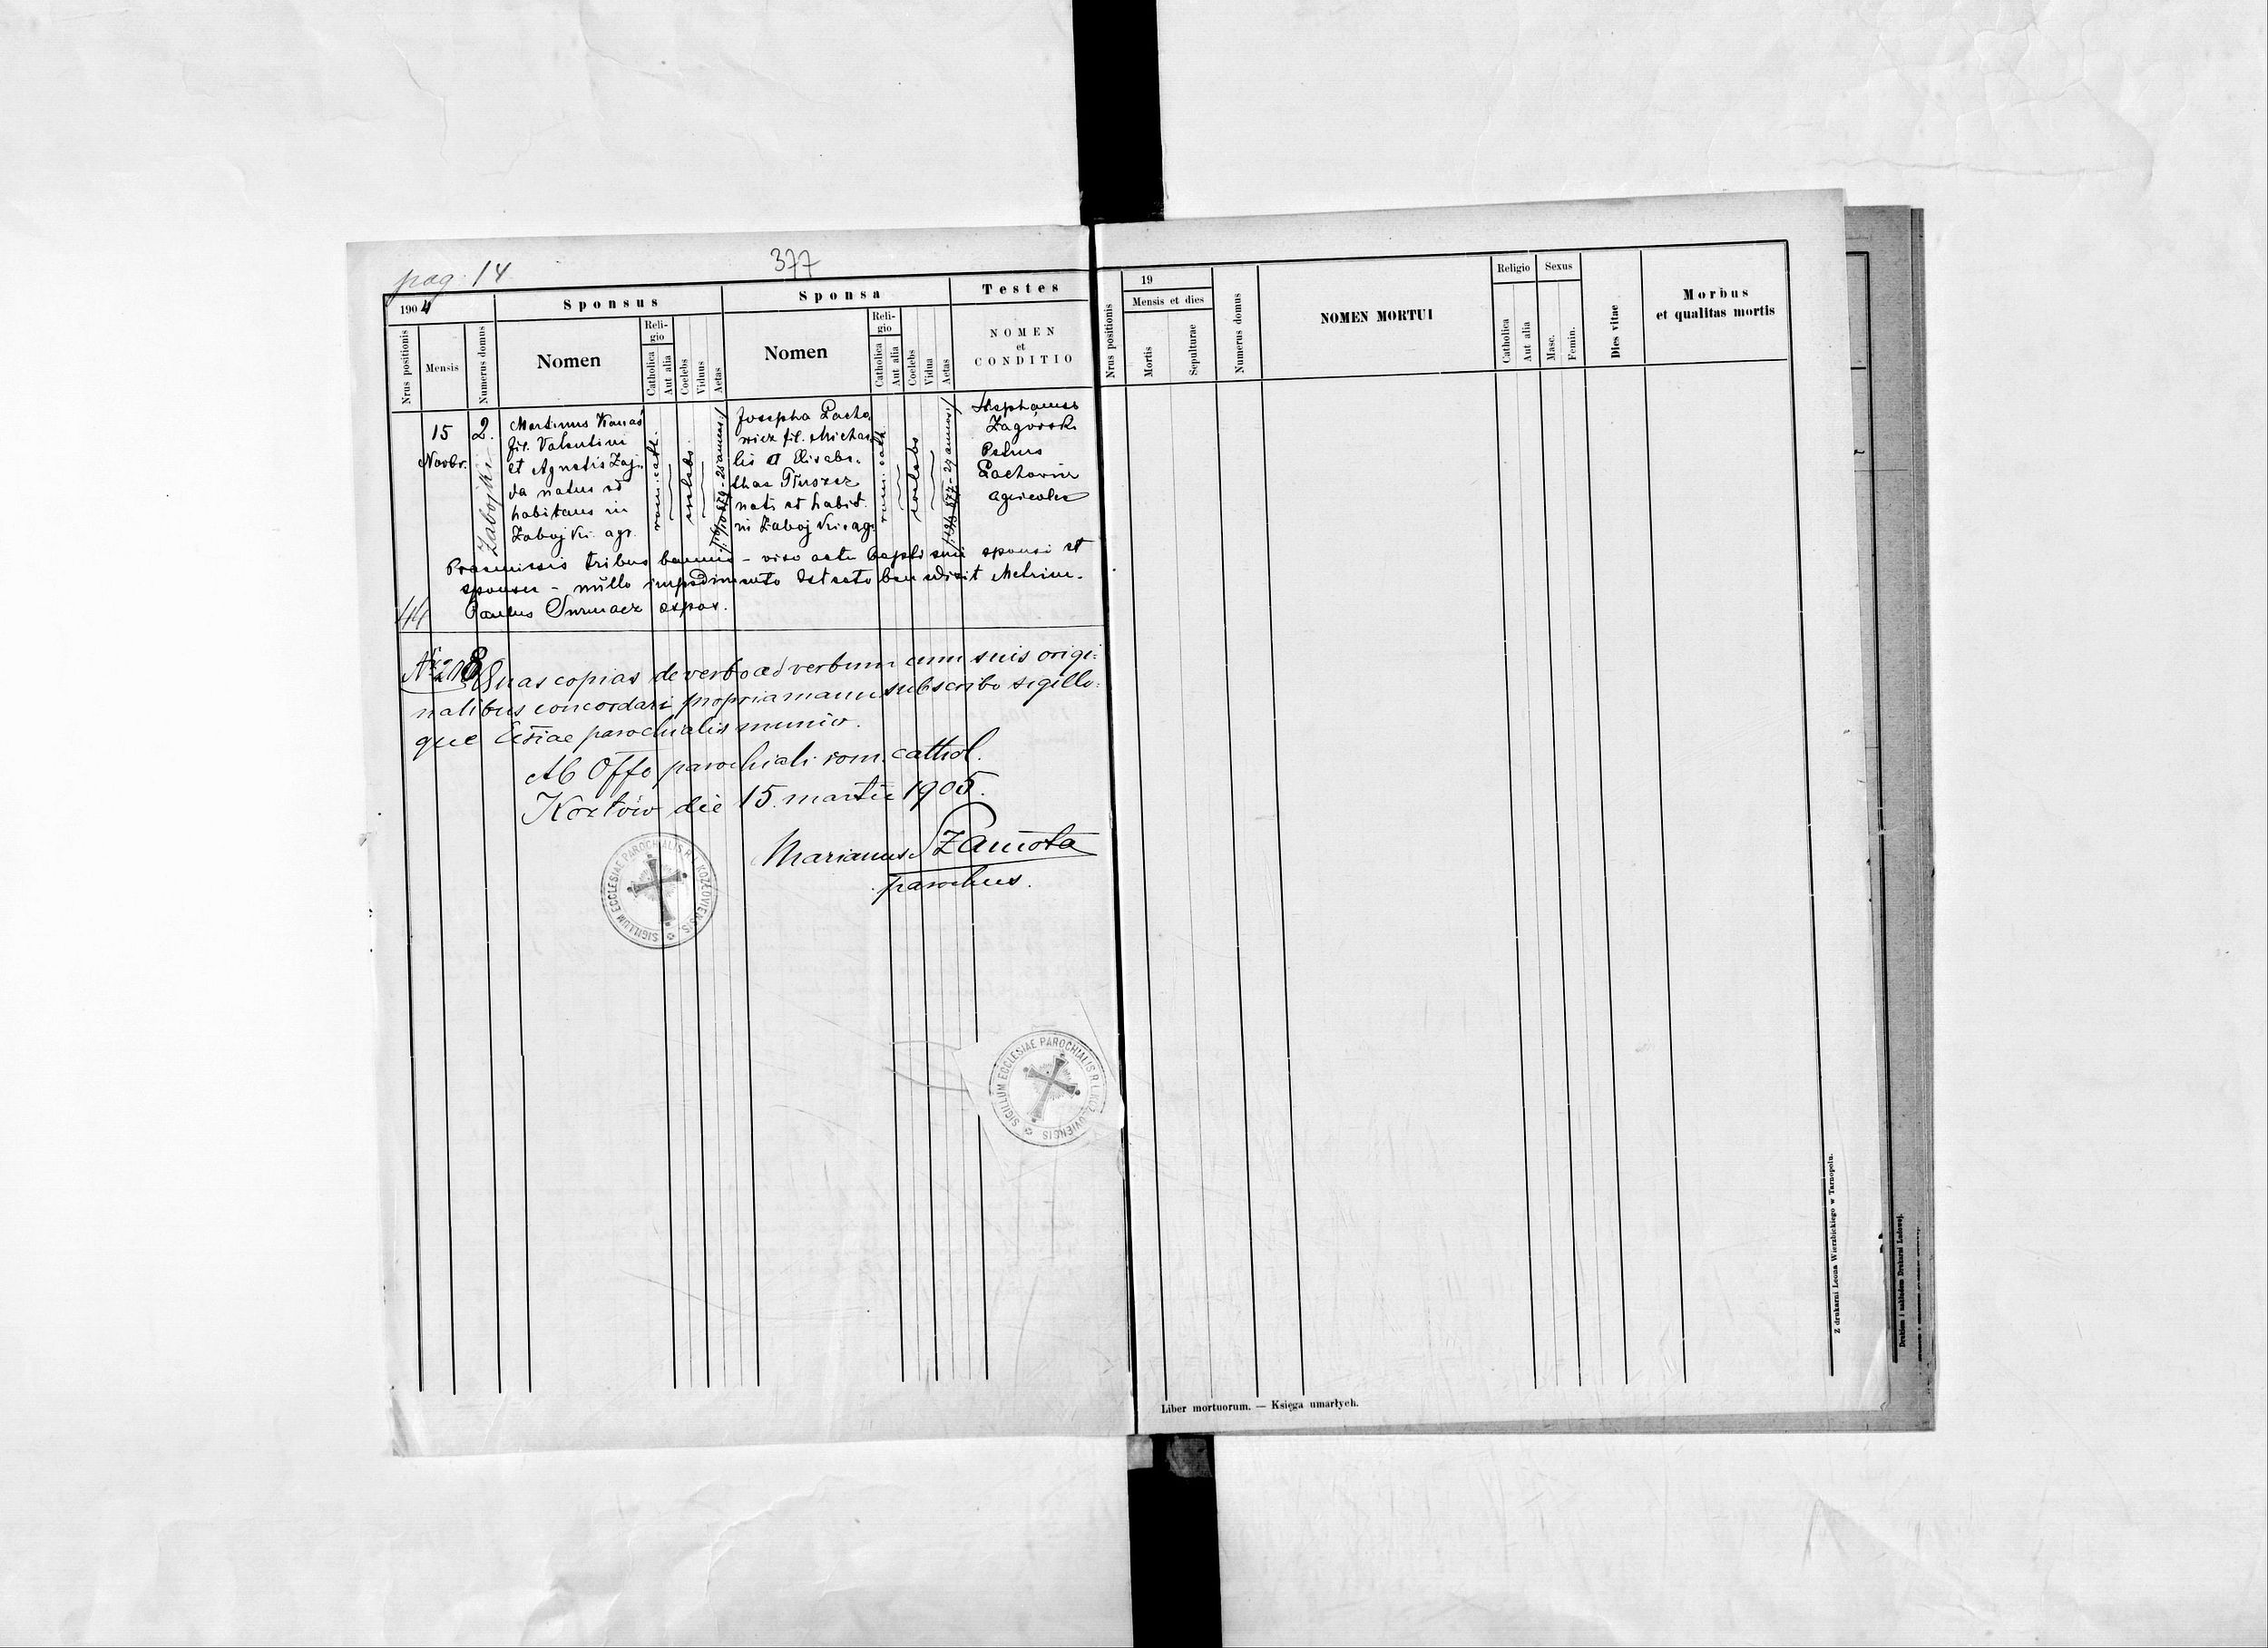 pag. 14
377
1904
Sponsus
Sponsa
Testes
Nrus positionis
Mensis
Numerus domus
Nomen
Religio
Catholica
Aut alia
Coelebs
Viduus
Aetas
Nomen
Religio
Catholica
Aut alia
Coelebs
Vidua
Aetas
NOMEN
et
CONDITIO
15
Novbr.
2.
Zabojki
Martinus Kanas
fil. Valentini
et Agnetis Zaj-
da natus et
habitans in
Zabojki agr.
rom. cath.
coelebs
25 annor.
Josepha Lacho
wicz fil. Micha
lis et Elisabe-
thae Tłuszcz
nata et habit.
in Zabojki agr.
rom. cath.
coelebs
877 - 27 annor.
Stephanus
Zagórski
Petrus
Lachowicz
agricolae
Praemissis tribus bannis - viso actu baptismi sponsi et
sponsae - nullo impedimento detecto benedixit Matrim.
Paulus Surmacz expos.
44
Quas copias de verbo ad verbum cum suis origi-
nalibus concordari propria manu subscribo sigillo-
que Ecclsiae parochialis munio.
Ab Offo parochiali rom. cathol.
Kozłów die 15. martii 1905.
Marianus Szamota
parochus.
SIGILLUM ECCLESIAE PAROCHIALIS R. L. KOZŁOVIENSIS
SIGILLUM ECCLESIAE PAROCHIALIS R. L. KOZŁOVIENSIS
Nrus positionis
19
Mensis et dies
Mortis
Sepulturae
Numerus domus
NOMEN MORTUI
Religio
Catholica
Aut alia
Sexus
Masc.
Femin.
Dies vitae
Morbus
et qualitas mortis
Liber mortuorum. — Księga umarłych.
Z drukarni Leona Wierzbickiego w Tarnopolu.
Drukiem i nakładem Drukarni Ludowej.